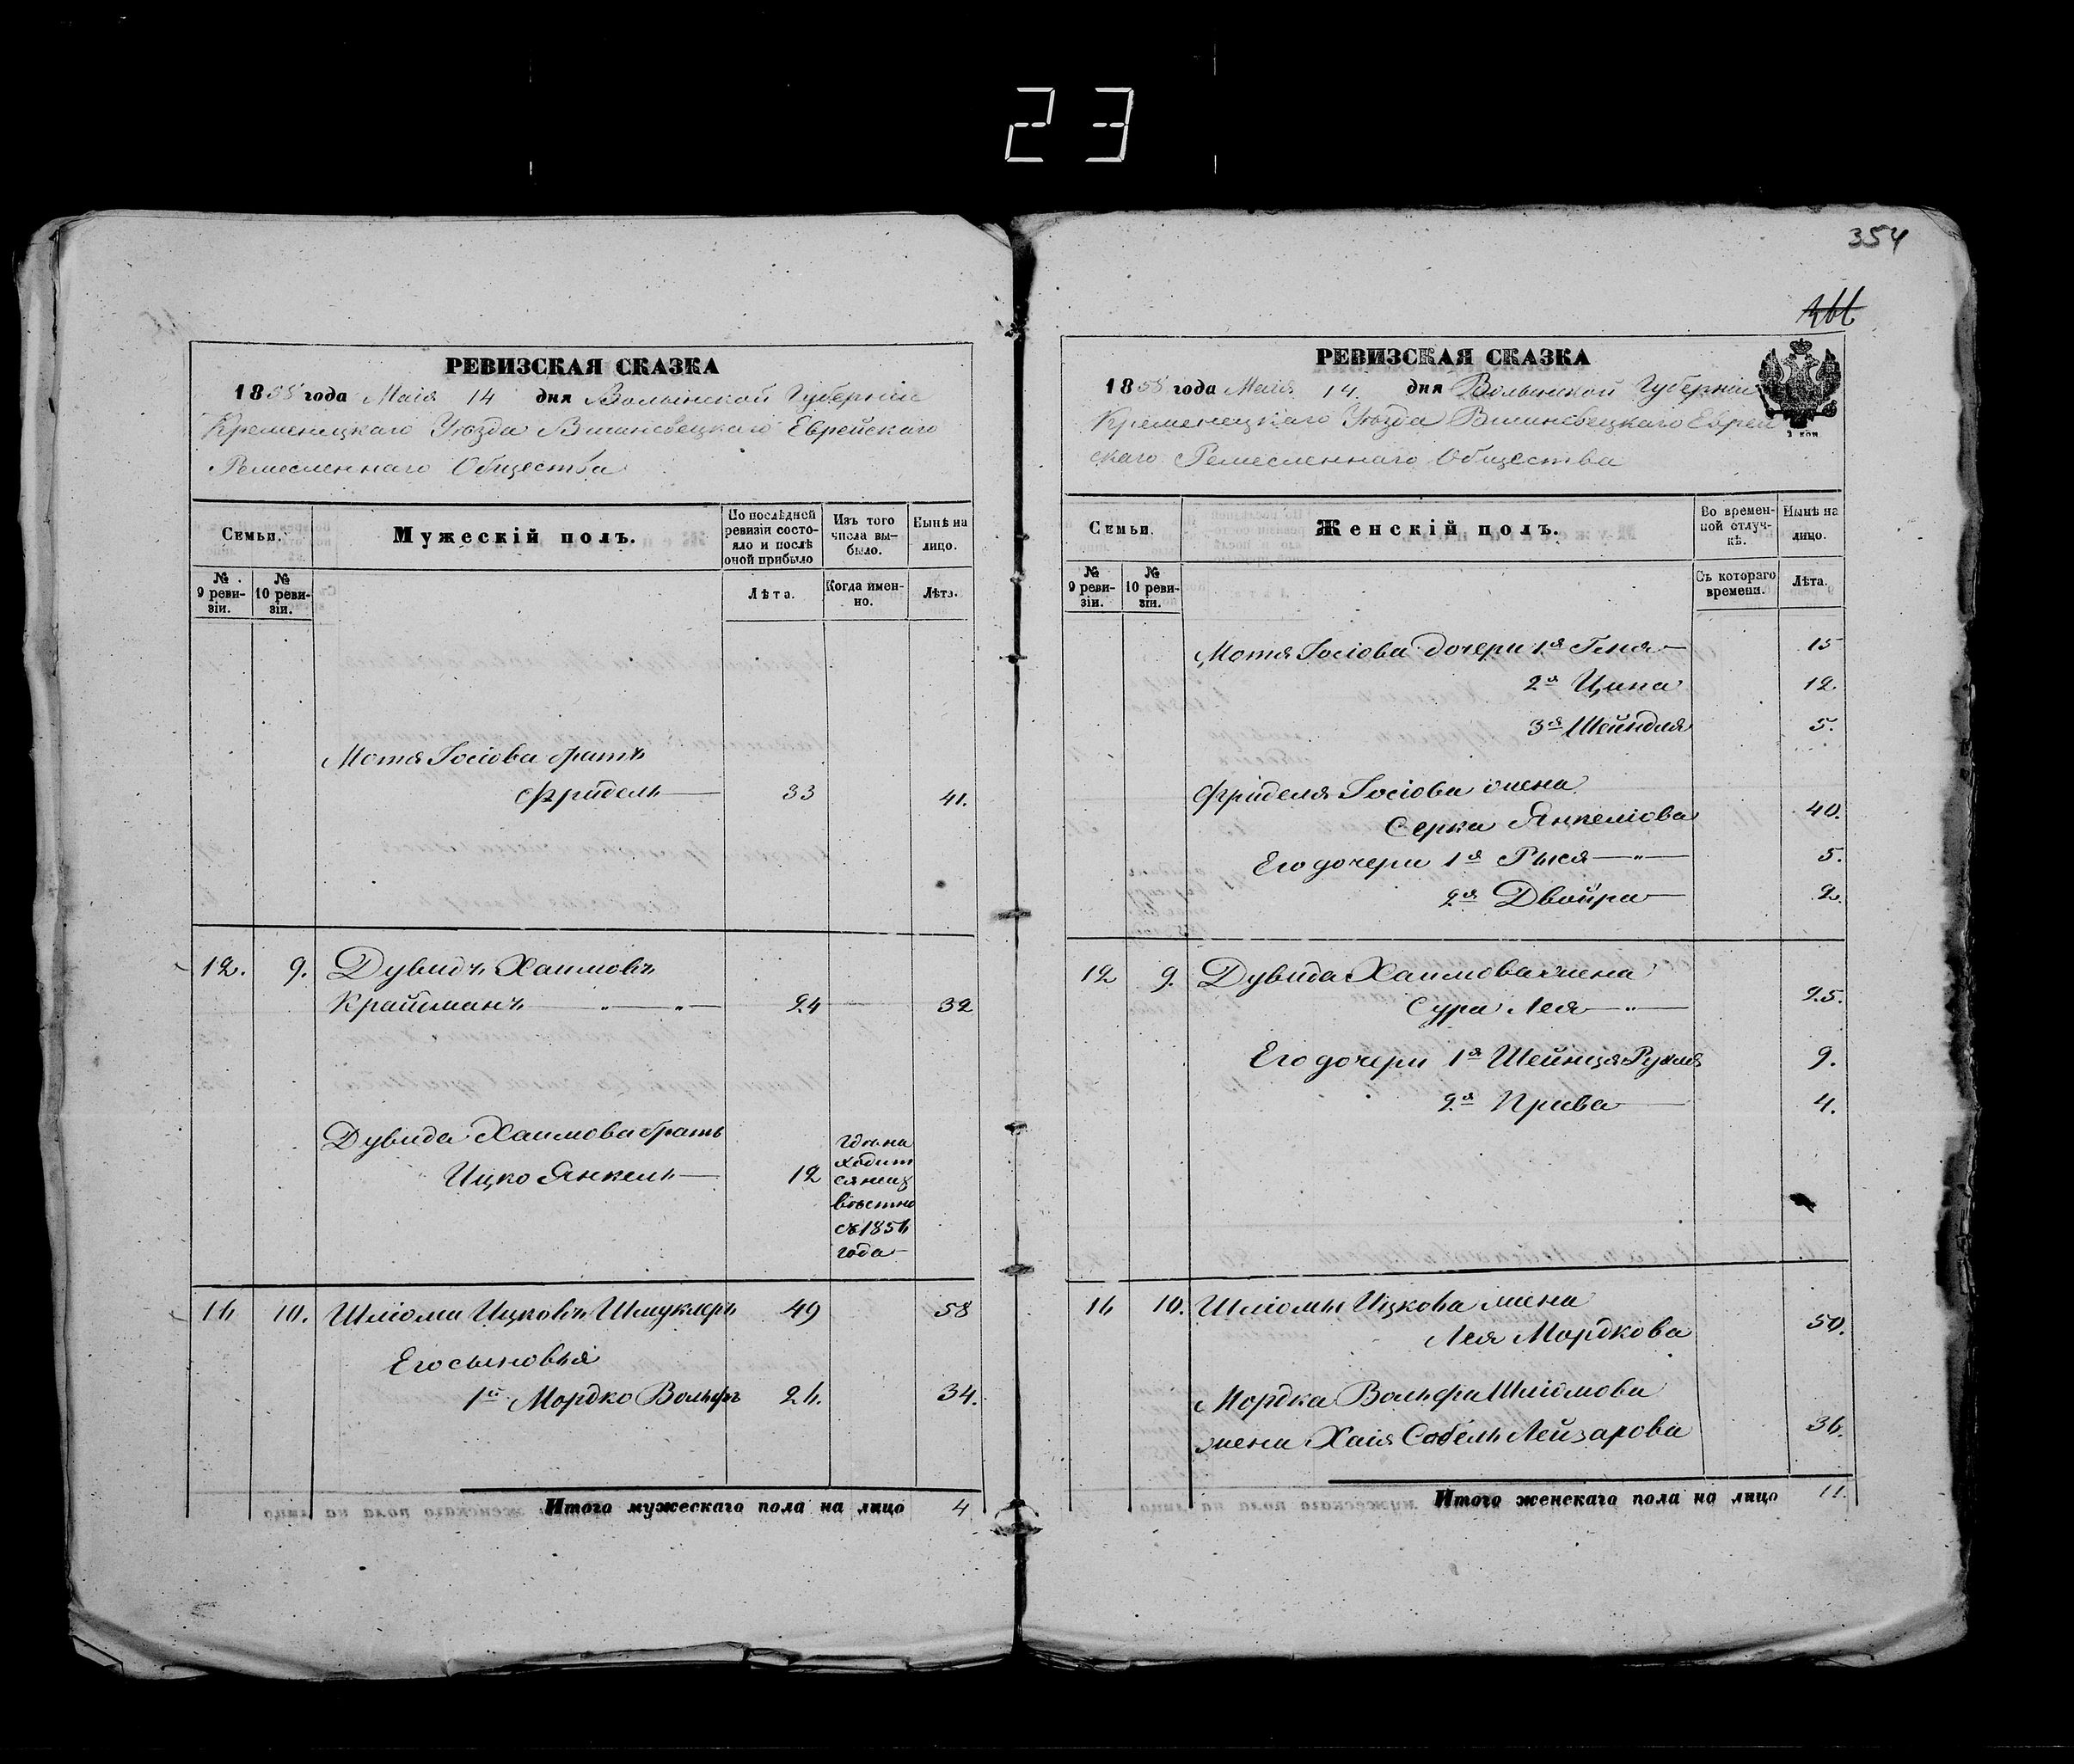 23
РЕВИЗСКАЯ СКАЗКА
1858 года Маія 14 дня Волынской Губерніи
Кременецкаго Уѣзда Вишневецкаго Еврейскаго
Ремесленнаго Общества
Семьи.
Мужескій полъ.
По послѣдней ревизіи состояло и послѣ оной прибыло
Изъ того числа выбыло.
Нынѣ на лицо.
№ 9 ревизіи.
№ 10 ревизіи.
Лѣта.
Когда именно.
Лѣта.
Мотя Іосіова братъ
Фридель 33 41.
12. 9. Дувидъ Хаимовъ
Крайзманъ 24 32
Дувида Хаимова братъ
Ицко Янкель 12
гдѣ на
ходит
ся неиз
вѣстно
съ 1854
года
16 10. Шліома Ицковъ Шмуклеръ 49 58
Его сыновья
1й Мордко Вольфъ 26. 34.
Итого мужескаго пола на лицо 4
354
366
РЕВИЗСКАЯ СКАЗКА
1858 года Маія 14 дня Волынской Губерніи
Кременецкаго Уѣзда Вишневецкаго Еврей
скаго Ремесленнаго Общества
Семьи.
Женскій полъ.
Во временной отлучкѣ.
Нынѣ на лицо.
№ 9 ревизіи.
№ 10 ревизіи.
Съ котораго времени.
Лѣта.
Мотя Іосіова дочери 1я Геня 15
2я Ципа 12
3я Шейндля 5.
Фриделя Іосіова жена
Серка Янкеліова 40.
Его дочери 1я Рыся 5.
2я Двойра 2.
12 9. Дувида Хаимова жена
Сура Лея 25.
Его дочери 1я Шейнця Рухля 9.
2я Прива 4.
16 10. Шліомы Ицкова жена
Лея Мордкова 50.
Мордка Вольфа Шліомова
жена Хаія Собель Лейзарова 36.
Итого женскаго пола на лицо 11.